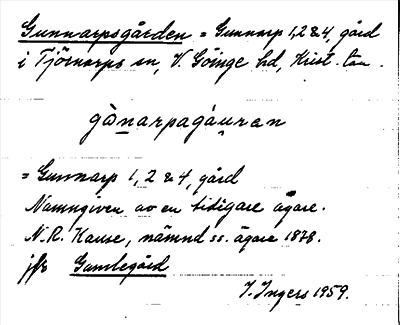 Gunnarpsgården = Gunnarp 1,2&4, gård
i Tjörnarps sn, V. Göinge hd, Krist. län.
gànarpagáuran
= Gunnarp 1, 2 & 4, gård
Namngiven av en tidigare ägare.
N.R. Kause, nämnd ss. ägare 1878.
jfr Gamlegård
I. Ingers 1959.